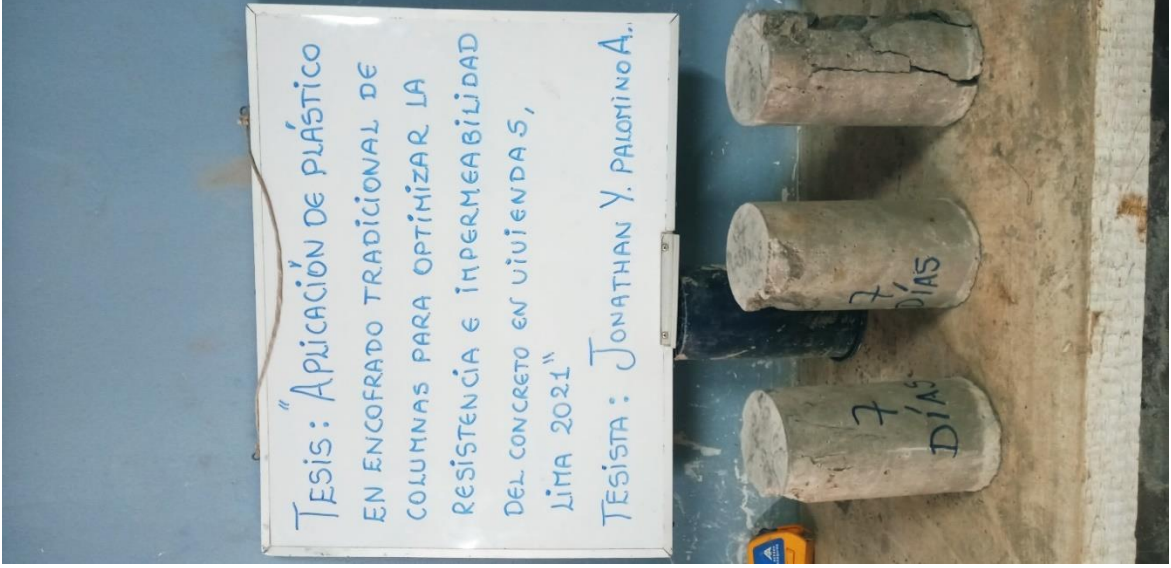 TESiS: "APLiCACiÓN DE PLÁSTiCO
EN ENCOFRADO TRADICIONAL DE
COLUMNAS PARA OPTIMIZAR LA
RESISTENCIA E IMPERMEABILIDAD
DEL CONCRETO EN VIVIENDAS,
LIMA 2021"
TESISTA: JONATHAN Y. PALOMINO A.
7
DÍAS
7
DÍAS